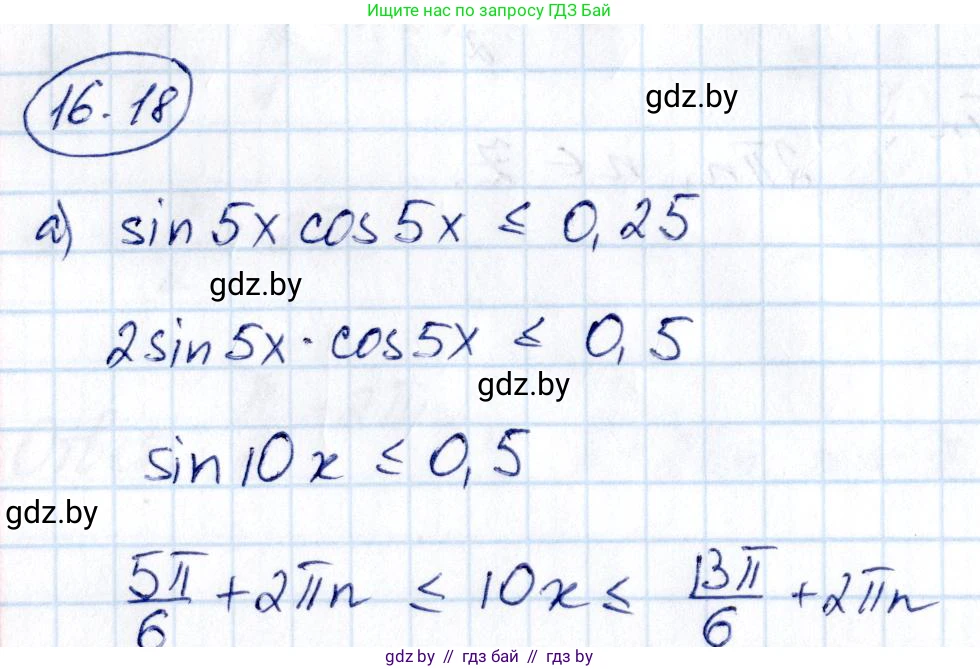 Ищите нас по запросу ГДЗ Бай
16.18
gdz.by
а) sin 5x cos 5x ≤ 0,25
gdz.by
2sin 5x · cos 5x ≤ 0,5
gdz.by
sin 10x ≤ 0,5
gdz.by
5π/6 + 2πn ≤ 10x ≤ 13π/6 + 2πn
gdz.by // гдз бай // гдз by